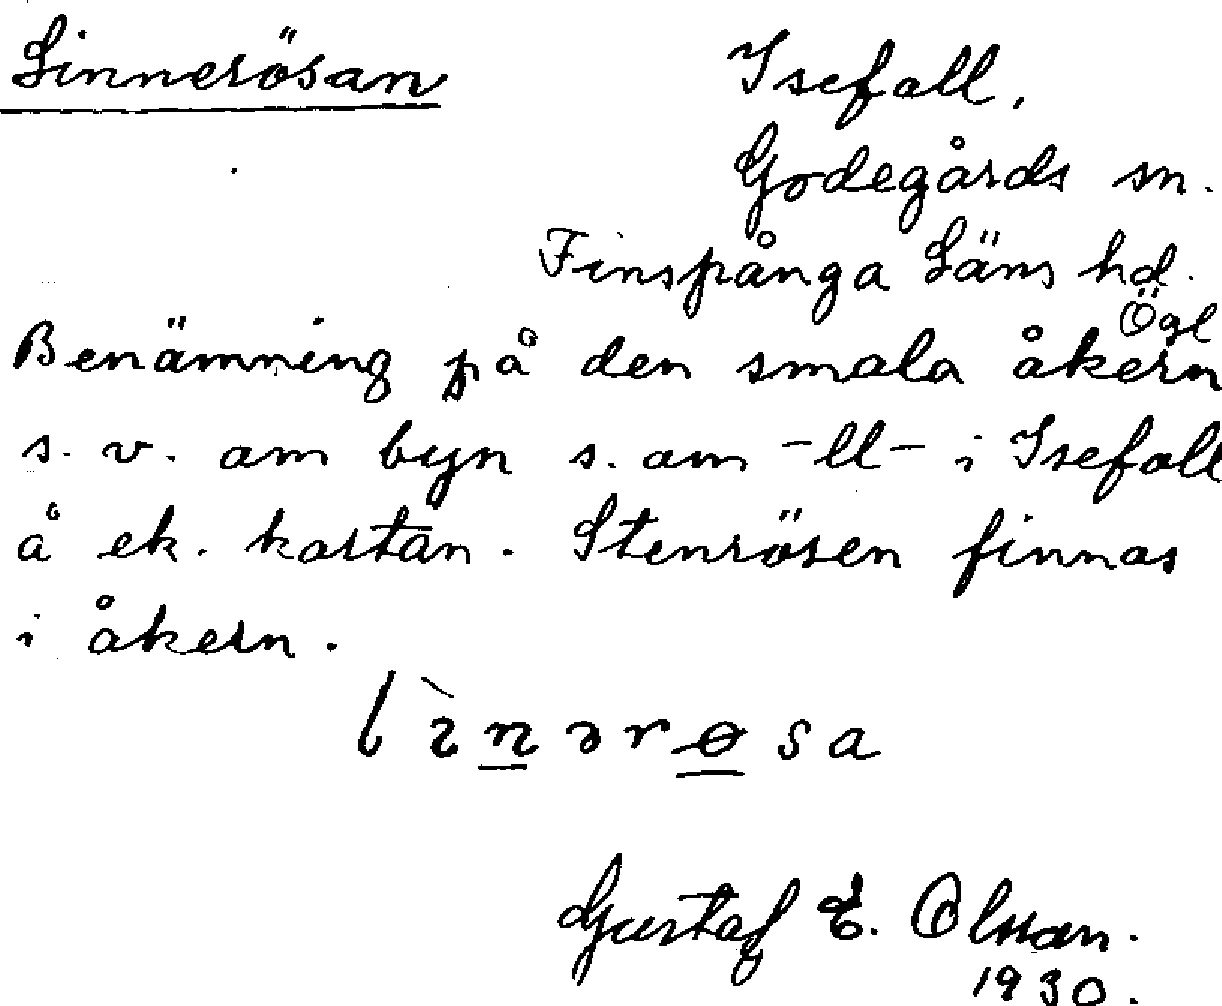 Linnerösan
Isefall,
Godegårds sn.
Finspånga Läns hd.
Ögl
Benämning på den smala åkern
s. v. om byn s. om -ll- i Isefall
å ek. kartan. Stenrösen finnas
i åkern.
lìnərøsa
Gustaf E. Olsson.
1930.